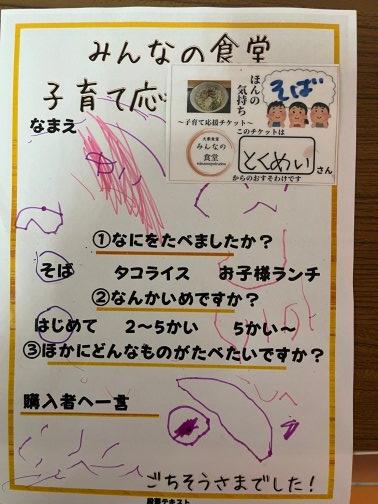 みんなの食堂
子育て応
ほんの気持ち
そば
〜子育て応援チケット〜
このチケットは
みんなの
食堂
とくめい さん
からのおすそわけです
なまえ
①なにをたべましたか？
そば タコライス お子様ランチ
②なんかいめですか？
はじめて 2〜5かい 5かい〜
③ほかにどんなものがたべたいですか？
購入者へ一言
ごちそうさまでした！